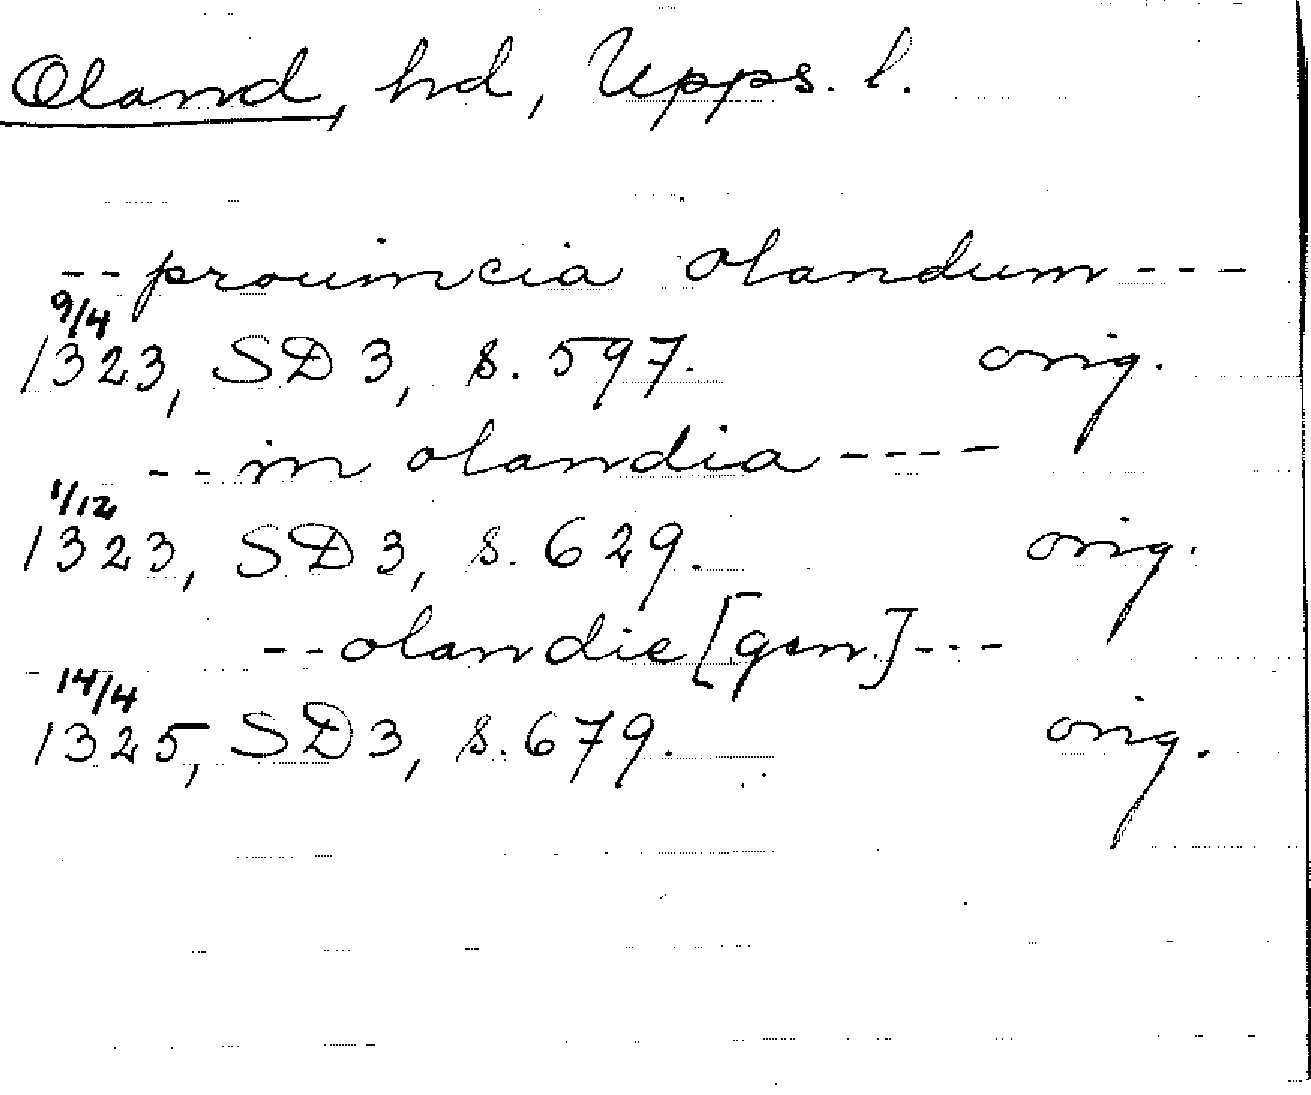 Oland, hd, Upps. l.
-- prouincia olandum ---
9/4
1323, SD 3, s. 597. orig.
-- in olandia ----
1/12
1323, SD 3, s. 629. orig.
-- olandie [gen.] ---
14/4
1325, SD 3, s. 679. orig.